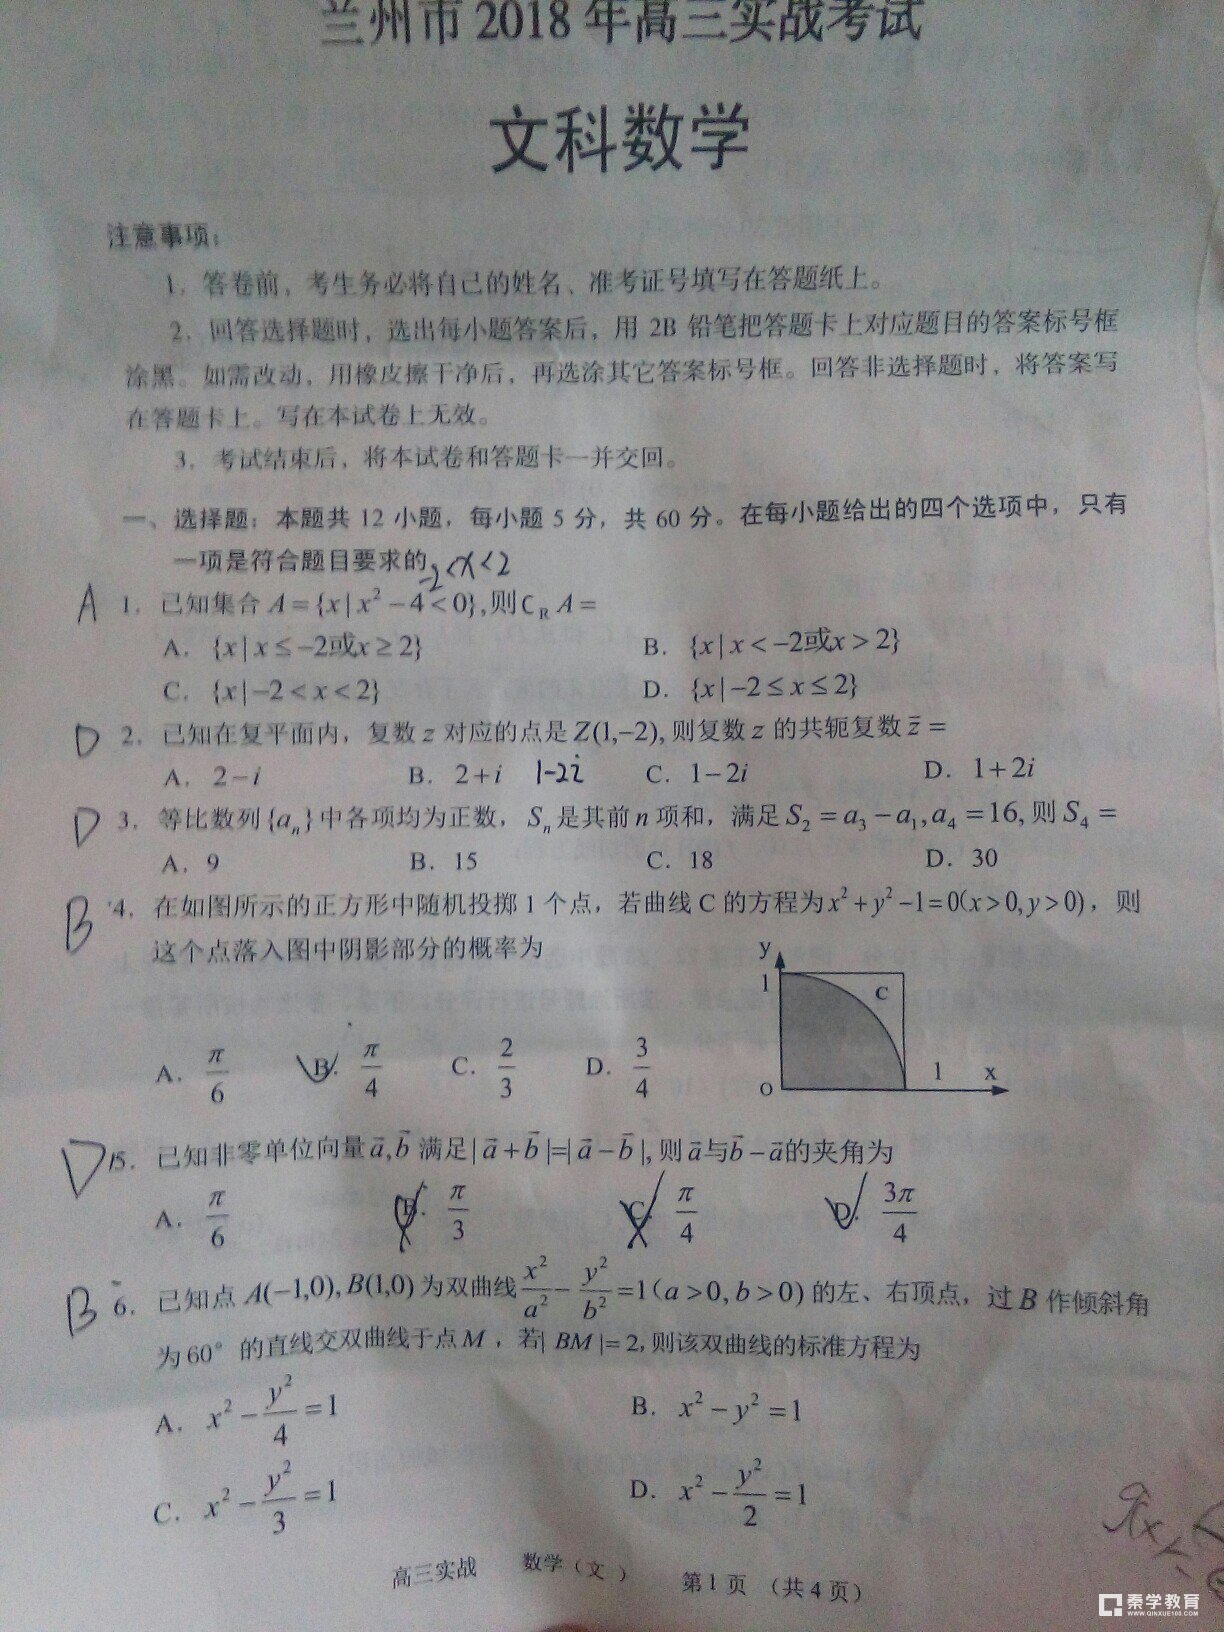 兰州市2018年高三实战考试
文科数学
注意事项：
1．答卷前，考生务必将自己的姓名、准考证号填写在答题纸上。
2．回答选择题时，选出每小题答案后，用 2B 铅笔把答题卡上对应题目的答案标号框
涂黑。如需改动，用橡皮擦干净后，再选涂其它答案标号框。回答非选择题时，将答案写
在答题卡上。写在本试卷上无效。
3．考试结束后，将本试卷和答题卡一并交回。
一、选择题：本题共 12 小题，每小题 5 分，共 60 分。在每小题给出的四个选项中，只有
一项是符合题目要求的
-2<x<2
A 1．已知集合 A={x|x²-4<0},则∁_R A=
A．{x|x≤-2或x≥2} B．{x|x<-2或x>2}
C．{x|-2<x<2} D．{x|-2≤x≤2}
D 2．已知在复平面内，复数 z 对应的点是 Z(1,-2), 则复数 z 的共轭复数 z̄ =
A．2-i B．2+i 1-2i C．1-2i D．1+2i
D 3．等比数列{aₙ}中各项均为正数，Sₙ是其前n项和，满足S₂=a₃-a₁,a₄=16,则S₄=
A．9 B．15 C．18 D．30
B 4．在如图所示的正方形中随机投掷 1 个点，若曲线 C 的方程为x²+y²-1=0(x>0,y>0)，则
这个点落入图中阴影部分的概率为
y
1
C
A．π/6 B．π/4 C．2/3 D．3/4
O 1 x
D 15．已知非零单位向量a⃗,b⃗ 满足|a⃗+b⃗|=|a⃗-b⃗|,则a⃗与b⃗-a⃗的夹角为
A．π/6 B．π/3 C．π/4 D．3π/4
B 6．已知点 A(-1,0),B(1,0)为双曲线x²/a²-y²/b²=1(a>0,b>0)的左、右顶点，过B作倾斜角
为60°的直线交双曲线于点M，若|BM|=2,则该双曲线的标准方程为
A．x²-y²/4=1 B．x²-y²=1
C．x²-y²/3=1 D．x²-y²/2=1
高三实战 数学（文） 第1页 （共4页）
秦学教育
WWW.QINXUE100.COM